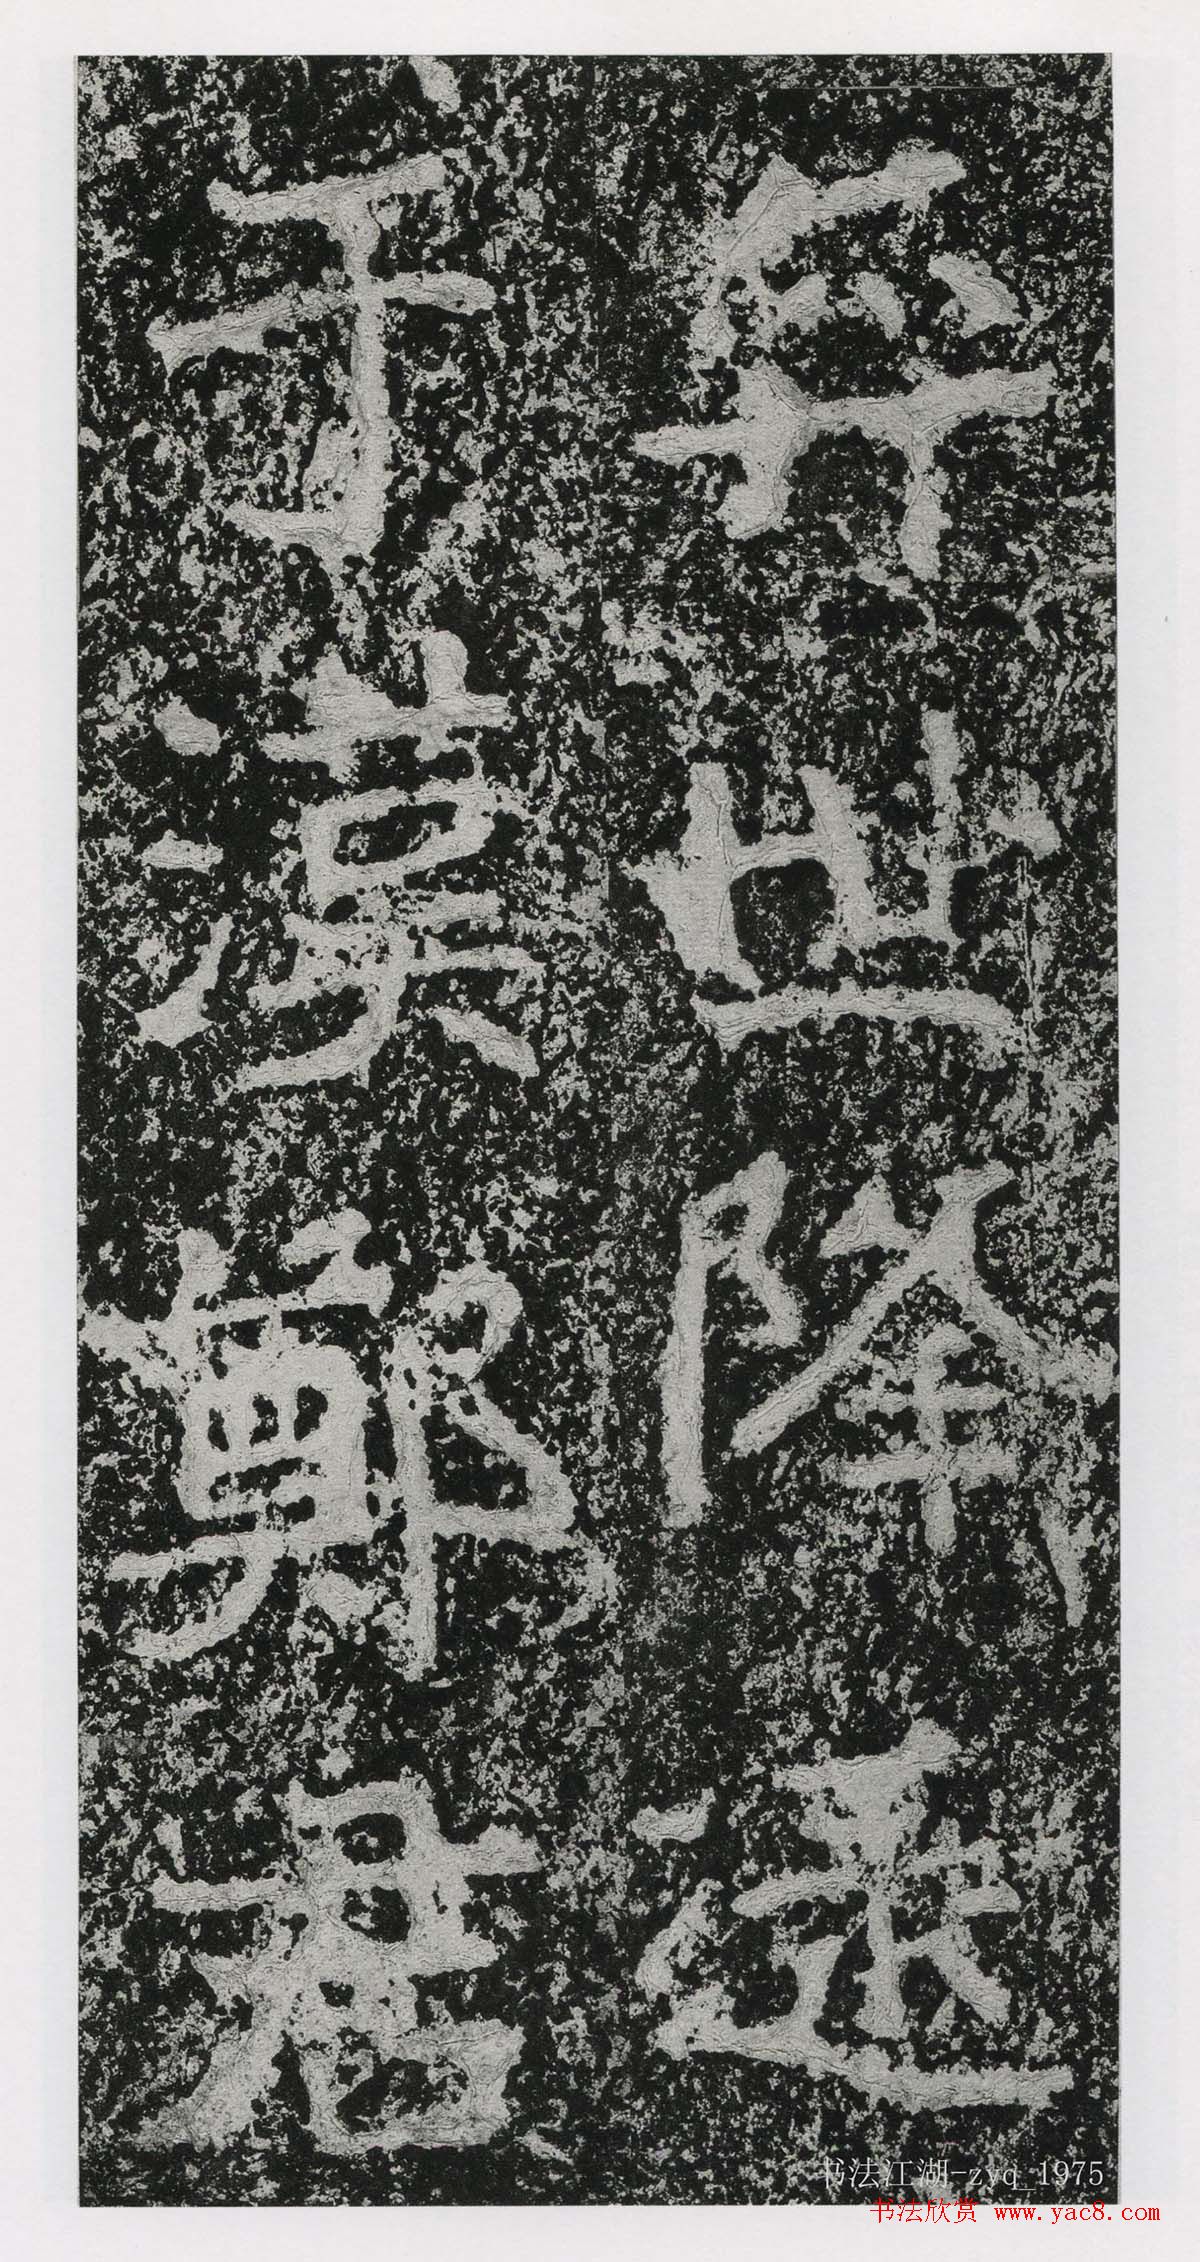 世降逮
于漢鄭君
书法江湖-zyq_1975
书法欣赏 www.yac8.com